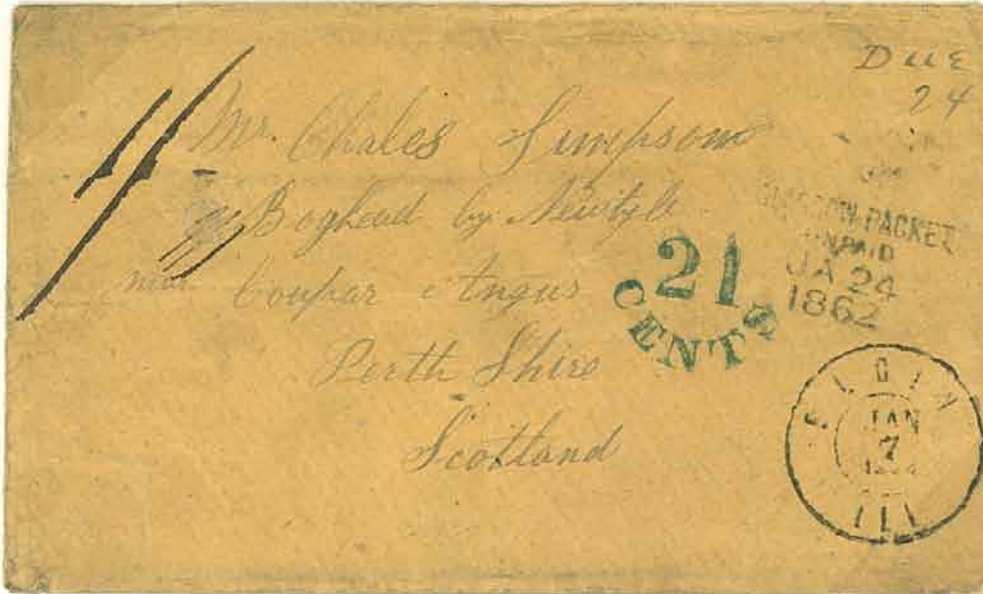 Due
24
Mr. Chales Simpson
Boghead by Newtyle
near Coupar Angus
Perth Shire
Scotland
21
CENTS
PACKET
UNPAID
JA 24
1862
ELGIN
JAN
7
ILL